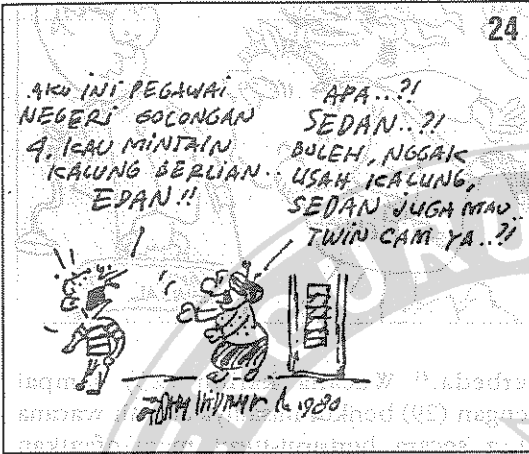 24
AKU INI PEGAWAI
NEGERI GOLONGAN
4. KAU MINTAIN
KALUNG BERLIAN..
EDAN!!
APA..?!
SEDAN..?!
BOLEH, NGGAK
USAH KALUNG,
SEDAN JUGA MAU..
TWIN CAM YA..?!
1980